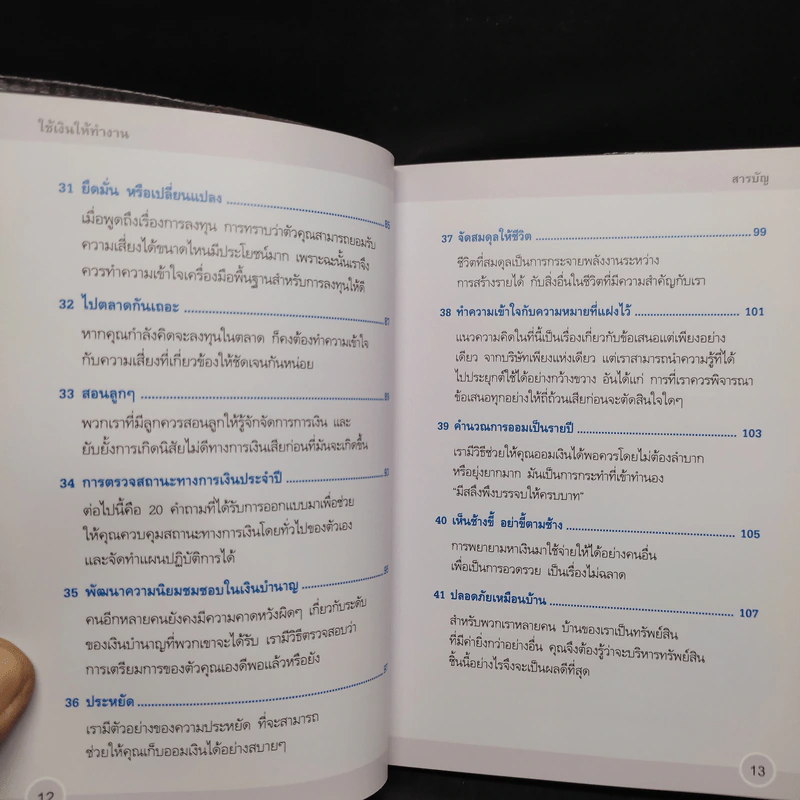 ใช้เงินให้ทำงาน
31 ยึดมั่น หรือเปลี่ยนแปลง ........ 85
เมื่อพูดถึงเรื่องการลงทุน การทราบว่าตัวคุณสามารถยอมรับ
ความเสี่ยงได้ขนาดไหนมีประโยชน์มาก เพราะฉะนั้นเราจึง
ควรทำความเข้าใจเครื่องมือพื้นฐานสำหรับการลงทุนให้ดี
32 ไปตลาดกันเถอะ ........ 87
หากคุณกำลังคิดจะลงทุนในตลาด ก็คงต้องทำความเข้าใจ
กับความเสี่ยงที่เกี่ยวข้องให้ชัดเจนกันหน่อย
33 สอนลูกๆ ........
พวกเราที่มีลูกควรสอนลูกให้รู้จักจัดการการเงิน และ
ยับยั้งการเกิดนิสัยไม่ดีทางการเงินเสียก่อนที่มันจะเกิดขึ้น
34 การตรวจสถานะทางการเงินประจำปี ........
ต่อไปนี้คือ 20 คำถามที่ได้รับการออกแบบมาเพื่อช่วย
ให้คุณควบคุมสถานะทางการเงินโดยทั่วไปของตัวเอง
และจัดทำแผนปฏิบัติการได้
35 พัฒนาความนิยมชมชอบในเงินบำนาญ ........
คนอีกหลายคนยังคงมีความคาดหวังผิดๆ เกี่ยวกับระดับ
ของเงินบำนาญที่พวกเขาจะได้รับ เรามีวิธีตรวจสอบว่า
การเตรียมการของตัวคุณเองดีพอแล้วหรือยัง
36 ประหยัด ........ 97
เรามีตัวอย่างของความประหยัด ที่จะสามารถ
ช่วยให้คุณเก็บออมเงินได้อย่างสบายๆ
12
สารบัญ
37 จัดสมดุลให้ชีวิต ........ 99
ชีวิตที่สมดุลเป็นการกระจายพลังงานระหว่าง
การสร้างรายได้ กับสิ่งอื่นในชีวิตที่มีความสำคัญกับเรา
38 ทำความเข้าใจกับความหมายที่แฝงไว้ ........ 101
แนวความคิดในที่นี้เป็นเรื่องเกี่ยวกับข้อเสนอแต่เพียงอย่าง
เดียว จากบริษัทเพียงแห่งเดียว แต่เราสามารถนำความรู้ที่ได้
ไปประยุกต์ใช้ได้อย่างกว้างขวาง อันได้แก่ การที่เราควรพิจารณา
ข้อเสนอทุกอย่างให้ถี่ถ้วนเสียก่อนจะตัดสินใจใดๆ
39 คำนวณการออมเป็นรายปี ........ 103
เรามีวิธีช่วยให้คุณออมเงินได้พอควรโดยไม่ต้องลำบาก
หรือยุ่งยากมาก มันเป็นการกระทำที่เข้าทำนอง
“มีสลึงพึงบรรจบให้ครบบาท”
40 เห็นช้างขี้ อย่าขี้ตามช้าง ........ 105
การพยายามหาเงินมาใช้จ่ายให้ได้อย่างคนอื่น
เพื่อเป็นการอวดรวย เป็นเรื่องไม่ฉลาด
41 ปลอดภัยเหมือนบ้าน ........ 107
สำหรับพวกเราหลายคน บ้านของเราเป็นทรัพย์สิน
ที่มีค่ายิ่งกว่าอย่างอื่น คุณจึงต้องรู้ว่าจะบริหารทรัพย์สิน
ชิ้นนี้อย่างไรจึงจะเป็นผลดีที่สุด
13